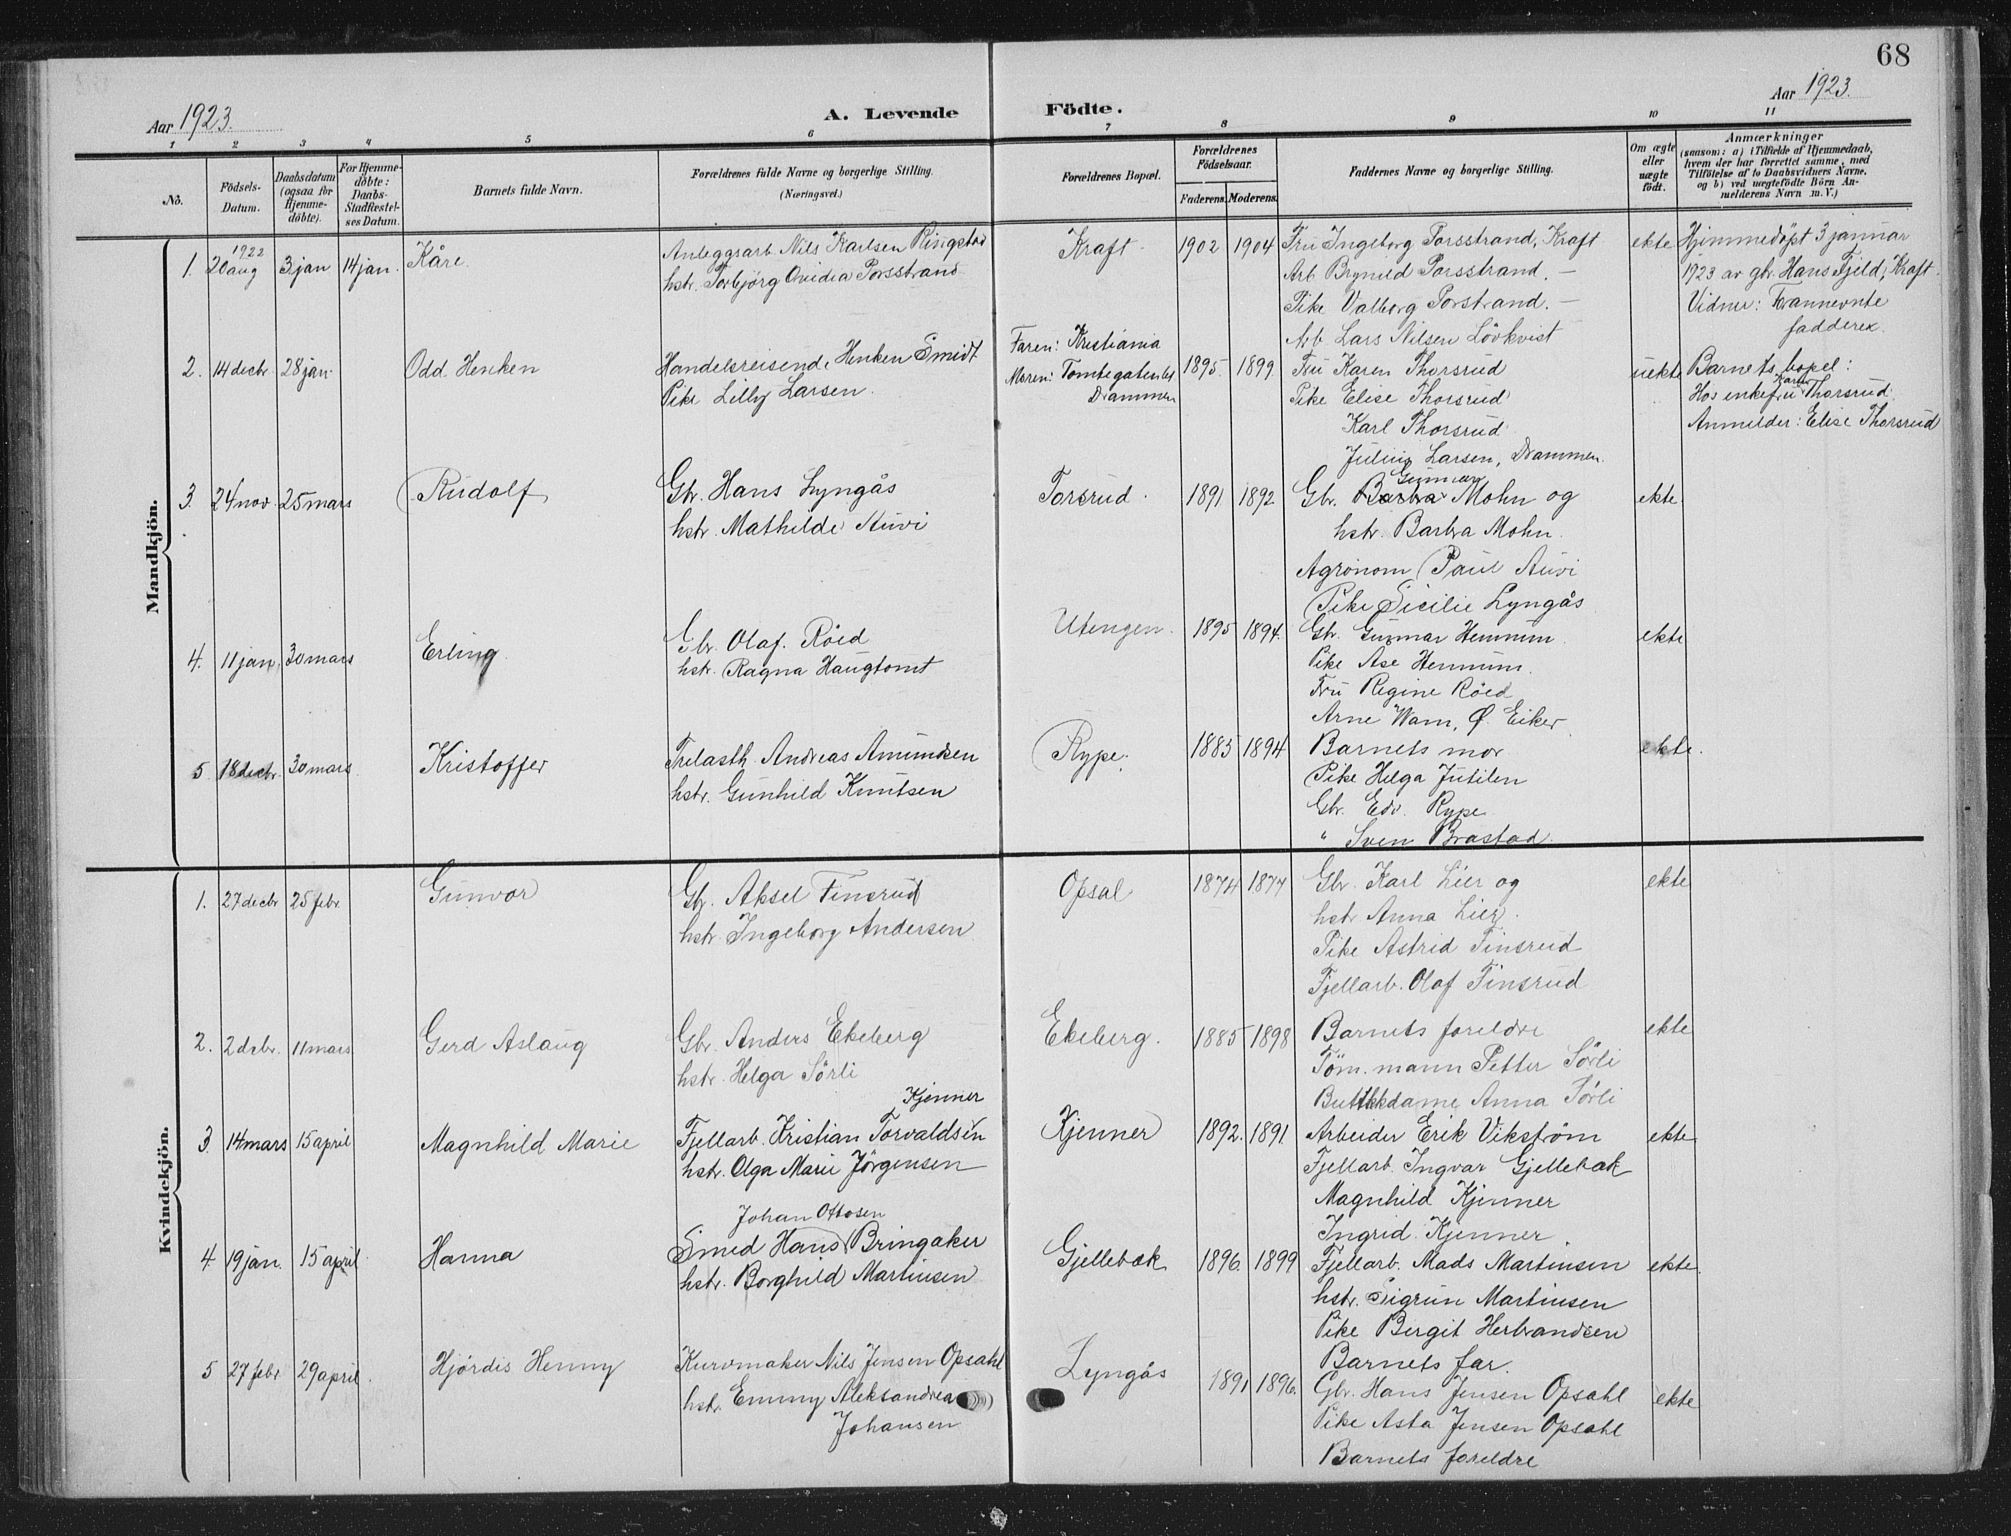 68
Aar 1923.
A. Levende Födte.
Aar 1923.
1 2 3 4 5 6 7 8 9 10 11
No.
Födsels-Datum.
Daabsdatum (ogsaa for Hjemmedöbte).
For Hjemmedöbte: Daabs-Stadfæstelses Datum.
Barnets fulde Navn.
Forældrenes fulde Navne og borgerlige Stilling. (Næringsvei.)
Forældrenes Bopæl.
Forældrenes Födselsaar.
Faderens. Moderens.
Faddernes Navne og borgerlige Stilling.
Om ægte eller uægte födt.
Anmærkninger
(saasom: a) i Tilfælde af Hjemmedaab, hvem der har forrettet samme, med Tilföielse af to Daabsvidners Navne, og b) ved uægtefödte Börn Anmelderens Navn m. V.)
Mandkjön.
1. 1922 20 aug 3 jan 14 jan. Kåre
Anleggsarb. Nils Karlsen Ringstad
hstr. Torbjörg Ovidia Porsstrand
Kraft. 1902 1904
Fru Ingeborg Porsstrand, Kraft
Arb. Brynild Porsstrand. —
Pike Valborg Porstrand. —
Arb. Lars Nilsen Lövkvist
ekte
Hjemmedöpt 3 januar
1923 av gbr. Hans Fjeld, Kraft.
Vidner: Frannevnte
fadderex.
2. 14 decbr. 28 jan. Odd Henken
Handelsreisend. Henken Smidt
Pike Lilly Larsen.
Faren: Kristiania
Moren: Tomtegaten
Drammen
1895. 1899
Fru Karen Thorsrud
Pike Elise Thorsrud
Karl Thorsrud
Julius Larsen, Drammen.
uekte
Barnets bopel:
Hos enkefru Karen Thorsrud.
Anmelder: Elise Thorsrud
3. 24 nov. 25 mars Rudolf
Gbr. Hans Lyngås
hstr. Mathilde Auvi
Torsrud. 1891 1892
Gbr. Barbra Gunnar Mohn og
hstr. Barbra Mohn.
Agronom Paul Auvi
Pike Sicilie Lyngås
ekte.
4. 11 jan. 30 mars Erling
Gbr. Olaf Röed
hstr. Ragna Haugtomt
Utengen. 1895 1894.
Gbr. Gunnar Hennum.
Pike Åse Hennum.
Fru Regine Röed
Arne Wam, Ø. Eiker
ekte
5 18 decbr. 30 mars Kristoffer
Trelasth. Andreas Amundsen
hstr. Gunhild Knutsen
Rype. 1885 1894
Barnets mor
Pike Helga Jutilen
Gbr. Edv. Rype
" Sven Brastad.
ekte.
Kvindekjön.
1. 27 decbr 25 febr. Gunvor
Gbr. Aksel Finsrud
hstr. Ingeborg Andersen
Opsal 1874 1877
Gbr. Karl Lier og
hstr. Anna Lier.
Pike Astrid Finsrud
Fjellarb. Olaf Finsrud
ekte
2. 2 dcbr. 11 mars Gerd Aslaug
Gbr. Anders Ekeberg
hstr. Helga Sörli
Ekeberg. 1885 1898
Barnets foreldre
Töm.mann Petter Sörli
Butikkdame Anna Sörli
ekte
3. 14 mars 15 april Magnhild Marie
Kjenner
Fjellarb. Kristian Torvaldsen
hstr. Olga Marie Jörgensen
Kjenner 1892. 1891
Arbeider Erik Vikström
Fjellarb. Ingvar Gjellebæk
Magnhild Kjenner
Ingrid Kjenner.
ekte
4 19 jan. 15 april Hanna
Johan Ottosen
Smed Hans Bringaker
hstr. Borghild Martinsen
Gjellebæk 1896. 1899
Fjellarb. Mads Martinsen
hstr. Sigrun Martinsen
Pike Bergit Herbrandsen
Barnets far.
ekte.
5 27 febr 29 april. Hjördis Henny
Kurvmaker Nils Jensen Opsahl
hstr. Emmy Aleksandrea
Johansen
Lyngås 1891 1896.
Gbr. Hans Jensen Opsahl
Pike Asta Jensen Opsahl
Barnets foreldre
ekte